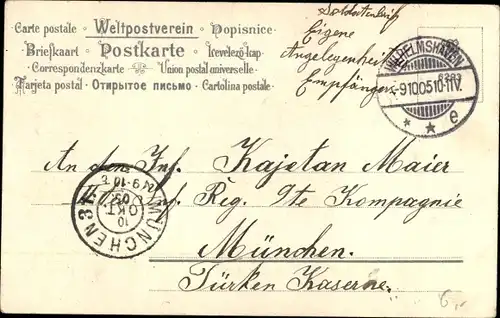 Carte postale · Weltpostverein · Dopisnice
Briefkaart · Postkarte · Levelező-lap
Correspondenzkarte · Union postal universelle ·
Tarjeta postal · Открытое письмо · Cartolina postale ·
Soldatenbrief
Eigene
Angelegenheit
Empfängers
WILHELMSHAVEN
-9.10.05.10-11V.
* * e
An den Inf. Kajetan Maier
Inf. Reg. 9te Kompagnie
München.
Türken Kaserne.
MÜNCHEN 31.
10
OKT
05